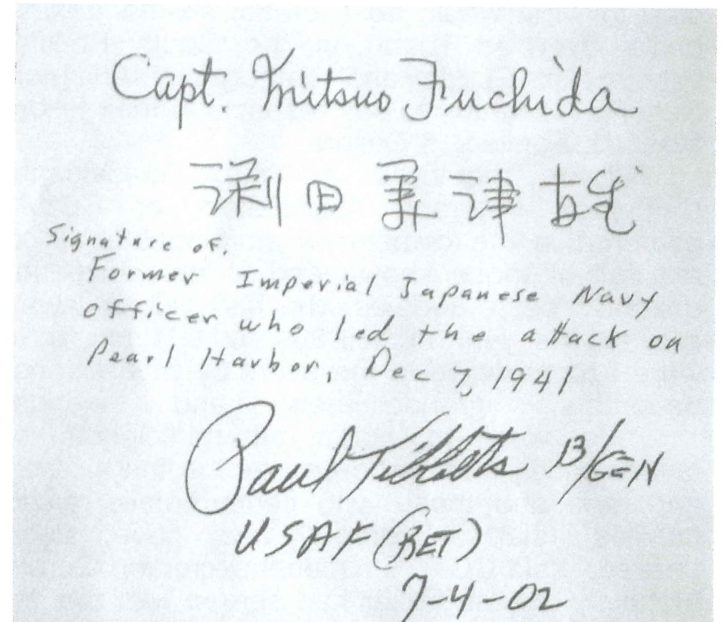 Capt. Mitsuo Fuchida
淵田美津雄
Signature of.
Former Imperial Japanese Navy
officer who led the attack on
Pearl Harbor, Dec 7, 1941
Paul Tibbets B/GEN
USAF (RET)
7-4-02